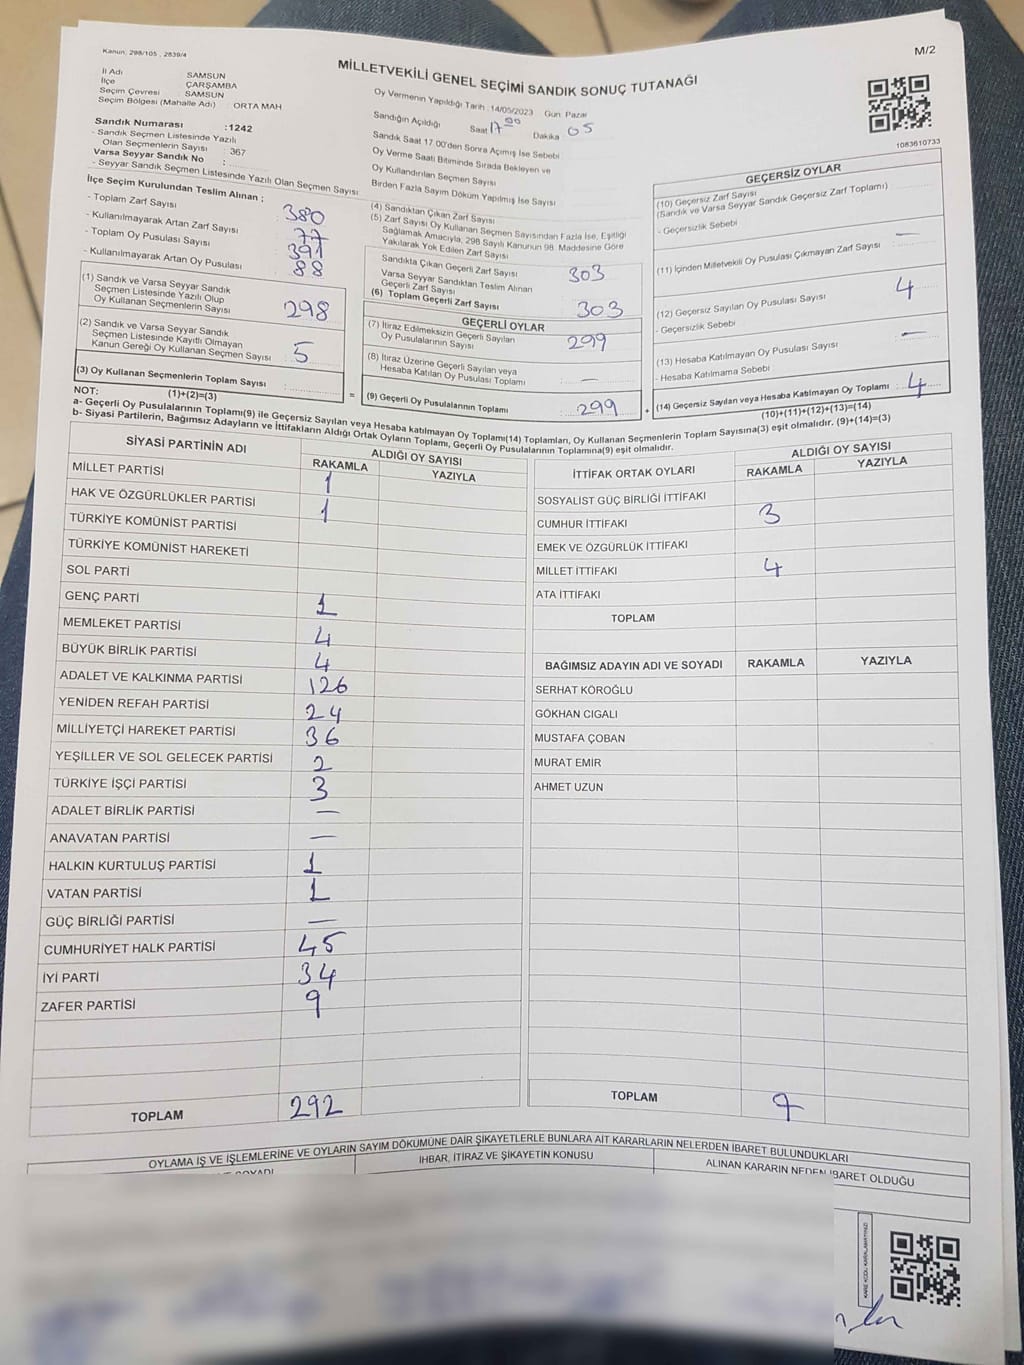 Kanun; 298/105 , 2839/4
M/2
MİLLETVEKİLİ GENEL SEÇİMİ SANDIK SONUÇ TUTANAĞI
İl Adı SAMSUN
İlçe ÇARŞAMBA
Seçim Çevresi SAMSUN
Seçim Bölgesi (Mahalle Adı) : ORTA MAH
Sandık Numarası :1242
- Sandık Seçmen Listesinde Yazılı
Olan Seçmenlerin Sayısı : 367
Varsa Seyyar Sandık No :
- Seyyar Sandık Seçmen Listesinde Yazılı Olan Seçmen Sayısı
Oy Vermenin Yapıldığı Tarih :14/05/2023 Gün: Pazar
Sandığın Açıldığı Saat 17 00 Dakika 05
Sandık Saat 17.00'den Sonra Açımış İse Sebebi
Oy Verme Saati Bitiminde Sırada Bekleyen ve
Oy Kullandırılan Seçmen Sayısı
Birden Fazla Sayım Döküm Yapılmış İse Sayısı
1083610733
İlçe Seçim Kurulundan Teslim Alınan ;
- Toplam Zarf Sayısı : 380
- Kullanılmayarak Artan Zarf Sayısı : 77
- Toplam Oy Pusulası Sayısı : 391
- Kullanılmayarak Artan Oy Pusulası : 88
(1) Sandık ve Varsa Seyyar Sandık
Seçmen Listesinde Yazılı Olup
Oy Kullanan Seçmenlerin Sayısı : 298
(2) Sandık ve Varsa Seyyar Sandık
Seçmen Listesinde Kayıtlı Olmayan
Kanun Gereği Oy Kullanan Seçmen Sayısı : 5
(3) Oy Kullanan Seçmenlerin Toplam Sayısı :
(4) Sandıktan Çıkan Zarf Sayısı
(5) Zarf Sayısı Oy Kullanan Seçmen Sayısından Fazla İse, Eşitliği
Sağlamak Amacıyla, 298 Sayılı Kanunun 98. Maddesine Göre
Yakılarak Yok Edilen Zarf Sayısı
Sandıkta Çıkan Geçerli Zarf Sayısı 303
Varsa Seyyar Sandıktan Teslim Alınan
Geçerli Zarf Sayısı
(6) Toplam Geçerli Zarf Sayısı 303
GEÇERLİ OYLAR
(7) İtiraz Edilmeksizin Geçerli Sayılan
Oy Pusulalarının Sayısı 299
(8) İtiraz Üzerine Geçerli Sayılan veya
Hesaba Katılan Oy Pusulası Toplamı : —
= (9) Geçerli Oy Pusulalarının Toplamı : 299
GEÇERSİZ OYLAR
(10) Geçersiz Zarf Sayısı
(Sandık ve Varsa Seyyar Sandık Geçersiz Zarf Toplamı)
- Geçersizlik Sebebi
(11) İçinden Milletvekili Oy Pusulası Çıkmayan Zarf Sayısı : —
(12) Geçersiz Sayılan Oy Pusulası Sayısı : 4
- Geçersizlik Sebebi
(13) Hesaba Katılmayan Oy Pusulası Sayısı : —
- Hesaba Katılmama Sebebi
+ (14) Geçersiz Sayılan veya Hesaba Katılmayan Oy Toplamı : 4
NOT: (1)+(2)=(3) (10)+(11)+(12)+(13)=(14)
a- Geçerli Oy Pusulalarının Toplamı(9) ile Geçersiz Sayılan veya Hesaba katılmayan Oy Toplamı(14) Toplamları, Oy Kullanan Seçmenlerin Toplam Sayısına(3) eşit olmalıdır. (9)+(14)=(3)
b- Siyasi Partilerin, Bağımsız Adayların ve İttifakların Aldığı Ortak Oyların Toplamı, Geçerli Oy Pusulalarının Toplamına(9) eşit olmalıdır.
SİYASİ PARTİNİN ADI ALDIĞI OY SAYISI
RAKAMLA YAZIYLA
MİLLET PARTİSİ 1
HAK VE ÖZGÜRLÜKLER PARTİSİ 1
TÜRKİYE KOMÜNİST PARTİSİ
TÜRKİYE KOMÜNİST HAREKETİ
SOL PARTİ
GENÇ PARTİ 1
MEMLEKET PARTİSİ 4
BÜYÜK BİRLİK PARTİSİ 4
ADALET VE KALKINMA PARTİSİ 126
YENİDEN REFAH PARTİSİ 24
MİLLİYETÇİ HAREKET PARTİSİ 36
YEŞİLLER VE SOL GELECEK PARTİSİ 2
TÜRKİYE İŞÇİ PARTİSİ 3
ADALET BİRLİK PARTİSİ —
ANAVATAN PARTİSİ —
HALKIN KURTULUŞ PARTİSİ 1
VATAN PARTİSİ 1
GÜÇ BİRLİĞİ PARTİSİ —
CUMHURİYET HALK PARTİSİ 45
İYİ PARTİ 34
ZAFER PARTİSİ 9
TOPLAM 292
İTTİFAK ORTAK OYLARI ALDIĞI OY SAYISI
RAKAMLA YAZIYLA
SOSYALİST GÜÇ BİRLİĞİ İTTİFAKI
CUMHUR İTTİFAKI 3
EMEK VE ÖZGÜRLÜK İTTİFAKI
MİLLET İTTİFAKI 4
ATA İTTİFAKI
TOPLAM
BAĞIMSIZ ADAYIN ADI VE SOYADI RAKAMLA YAZIYLA
SERHAT KÖROĞLU
GÖKHAN CIGALI
MUSTAFA ÇOBAN
MURAT EMİR
AHMET UZUN
TOPLAM 7
OYLAMA İŞ VE İŞLEMLERİNE VE OYLARIN SAYIM DÖKÜMÜNE DAİR ŞİKAYETLERLE BUNLARA AİT KARARLARIN NELERDEN İBARET BULUNDUKLARI
İHBAR, İTİRAZ VE ŞİKAYETİN KONUSU
ALINAN KARARIN NEDEN İBARET OLDUĞU